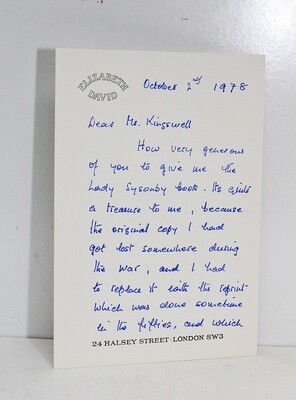 ELIZABETH
DAVID
October 2nd 1978
Dear Mr. Kingswell
How very generous
of you to give me the
Lady Sysonby book. Its quite
a treasure to me, because
the original copy I had
got lost somewhere during
the war, and I had
to replace it with the reprint
which was done sometime
in the fifties, and which
24 HALSEY STREET · LONDON SW3